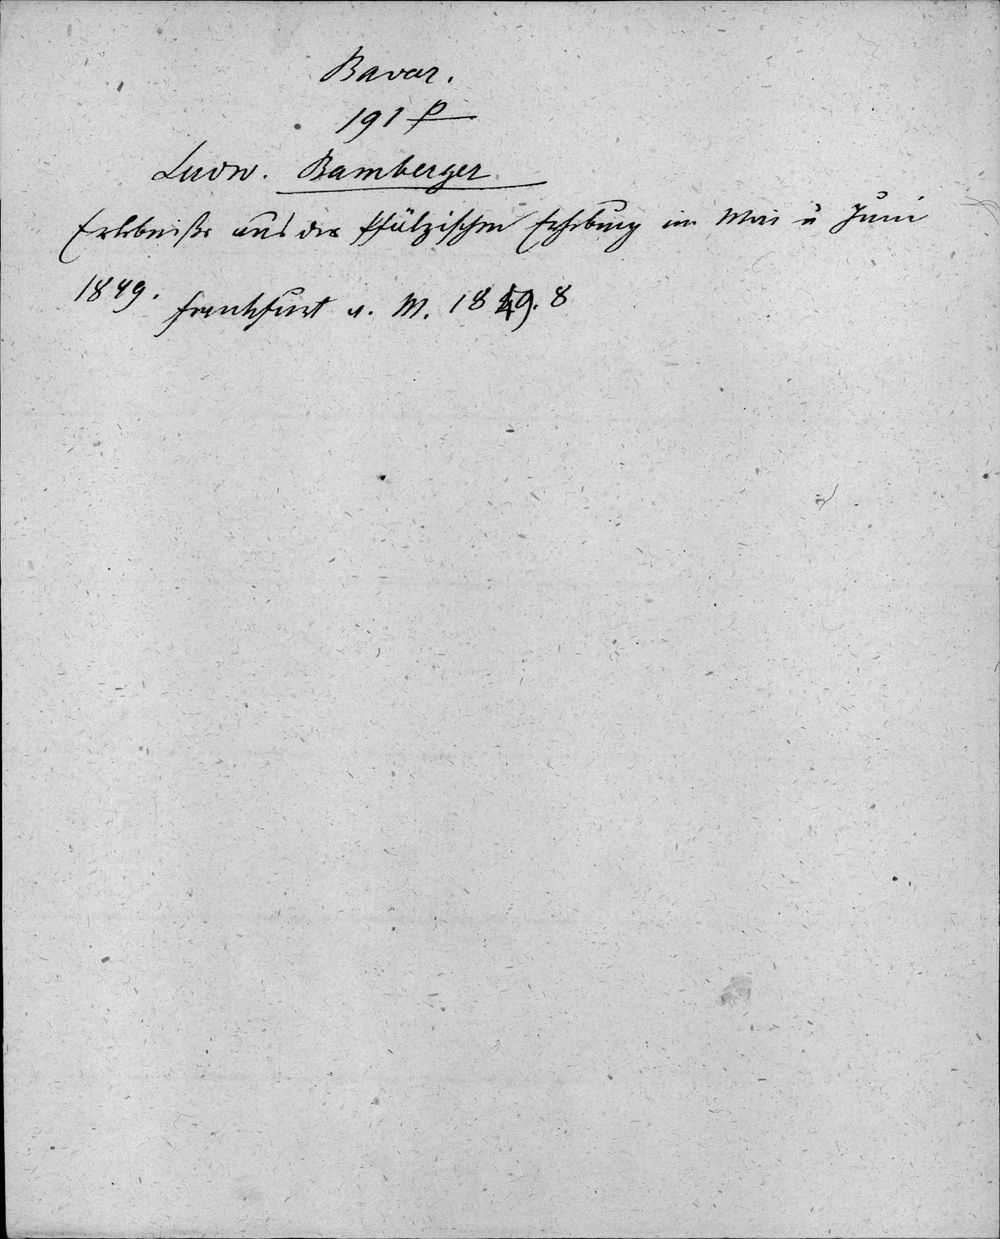 Bavar.
191 p
Ludw. Bamberger
Erlebniße aus der Pfälzischen Erhebung im Mai u Juni
1849. Frankfurt a. M. 1849. 8